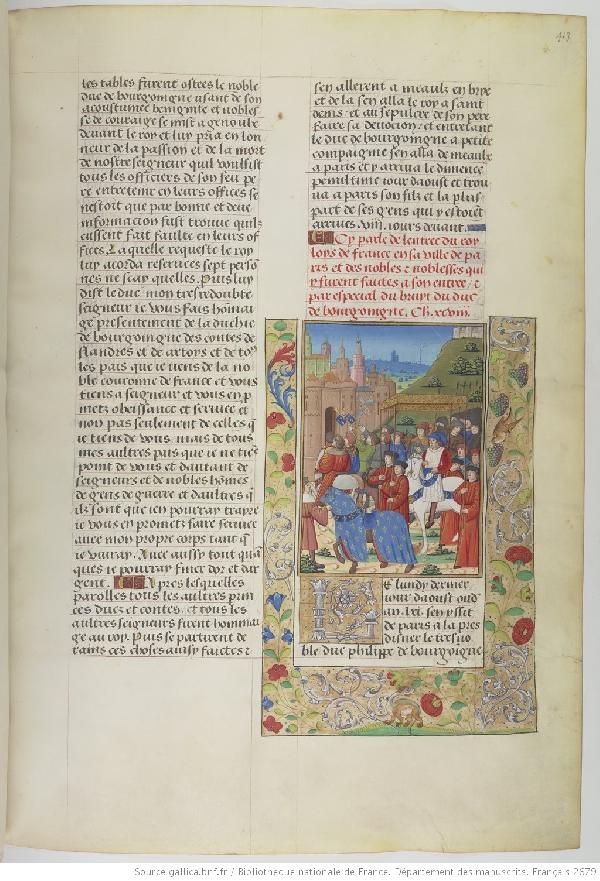 413
les tables furent ostees le noble
duc de bourgoingne usant de son
acoustumee benignite et nobles
se de couraige se mist a genoulx
devant le roy et luy pria en lon
neur de la passion et de la mort
de nostre seigneur quil voulsist
tous les officiers de son feu pe
re entretenir en leurs offices se
nestoit que par bonne et deue
informacion fust trouve quilz
eussent fait faulte en leurs of
fices. Laquelle requeste le roy
luy acorda reservees sept person
nes ne scay quelles. Puis luy
dist le duc mon tresredoubte
seigneur ie vous fais homma
ge presentement de la duchie
de bourgoingne des contes de
flandres et de artoys et de tous
les pais que ie tiens de la no
ble couronne de france et vous
tiens a seigneur et vous en p
metz obeissance et service et
non pas seulement de celles q
ie tiens de vous. mais de tous
mes aultres pais que ie ne tiens
point de vous et dautant de
seigneurs et de nobles hommes
de gens de guerre et daultres q
ilz sont que ien pourray traire
ie vous en prometz faire service
avec mon propre corps tant q
ie vivray. Avec aussy tout quan
ques ie pourray finer dor et dar
gent. Apres lesquelles
parolles tous les aultres prin
ces ducz et contes. et tous les
aultres seigneurs firent homma
ge au roy. Puis se partirent de
rains ces choses ainsy faictes z
sen allerent a meaulx en brye
et de la sen alla le roy a saint
denis. et au sepulcre de son pere
faire sa devocion. et entretant
le duc de bourgoingne a petite
compaignie sen alla de meaulx
a paris et y arriva le dimence
penultime iour daoust et trou
va a paris son filz et la plus
part de ses gens qui y estoient
arrives .viii. iours devant.
Cy parle de lentree du roy
loys de france en sa ville de pa
ris et des nobles noblesses qui
y furent faictes a son entree. z
par especial du bruyt du duc
de bourgoingne. Ch. xcviii.
Le lundy dernier
iour daoust oudit
an .lxi. sen yssit
de paris a la pres
disner le tresno
ble duc philippe de bourgoigne
Source gallica.bnf.fr / Bibliothèque nationale de France. Département des manuscrits. Français 2679